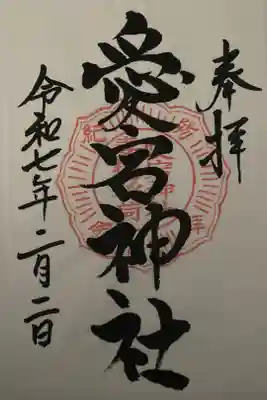 奉拝
愛宮神社
令和七年二月二日